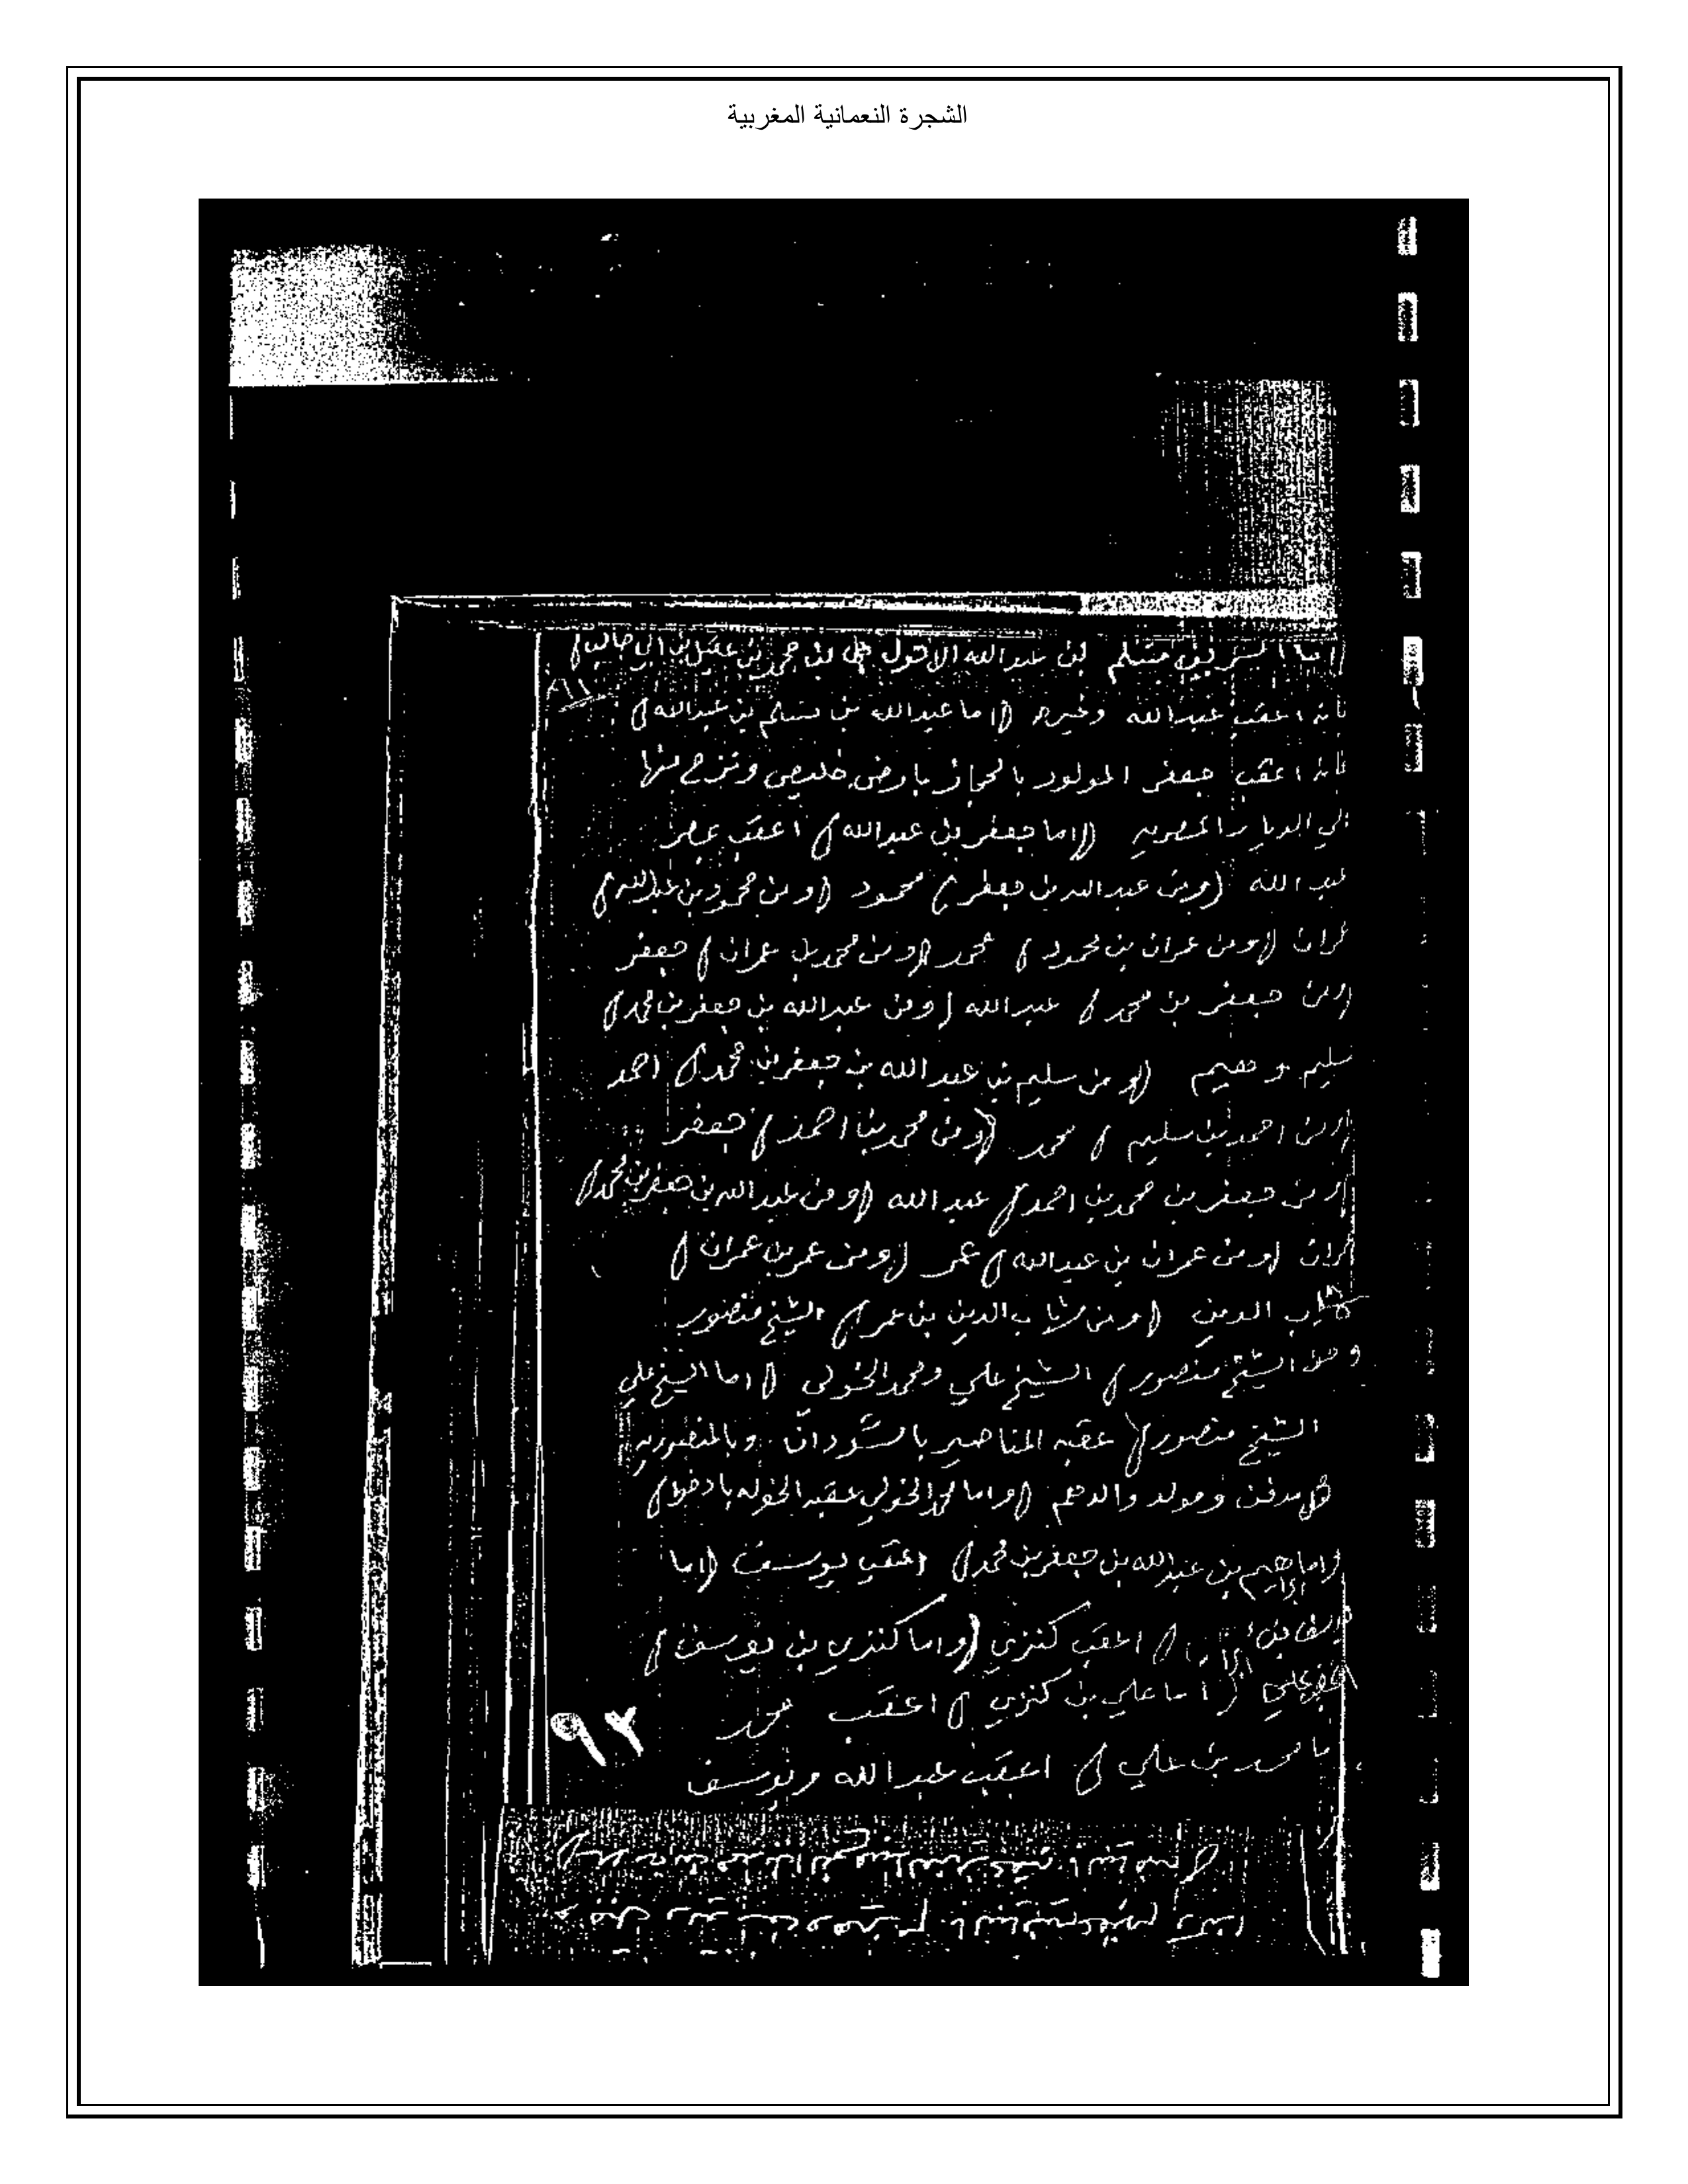 الشجرة النعمانية المغربية
اما الشريف مسلم بن عبدالله الاحول بن محمد بن عقيل بن ابي طالب)
فانه اعقب عبدالله وغيره (اما عبدالله بن مسلم بن عبدالله)
فانه اعقب جعفر المولود بالحجاز بارض خليص ونزح منها
الي الديار المصريه (اما جعفر بن عبدالله) اعقب بمصر
عبد الله (ومن عبد الله بن جعفر) محمود (ومن محمود بن عبدالله)
عمران (ومن عمران بن محمود) محمد (ومن محمد بن عمران) جعفر
(ومن جعفر بن محمد) عبدالله (ومن عبدالله بن جعفر بن محمد)
سليم و (ومن سليم بن عبدالله بن جعفر بن محمد) احمد
(ومن احمد بن سليم) محمد (ومن محمد بن احمد) جعفر
(ومن جعفر بن محمد بن احمد) عبد الله (ومن عبد الله بن جعفر بن محمد)
عمران (ومن عمران بن عبدالله) عمر (ومن عمر بن عمران)
شهاب الدين (ومن شهاب الدين بن عمر) الشيخ منصور
ومن الشيخ منصور) الشيخ علي ومحمد الخولي (اما الشيخ علي
الشيخ منصور) عقبه المناصير بالسودان وبالمنصوريه
مدفن ومولد والدهم (واما محمد الخولي عقبه الخوله
بن عبدالله بن جعفر بن محمد) اعقب يوسف (اما
اعقب كنزي (واما كنزي بن يوسف)
علي (اما علي بن كنزي) اعقب محمد
محمد بن علي) اعقب عبد الله ويوسف
٩٢